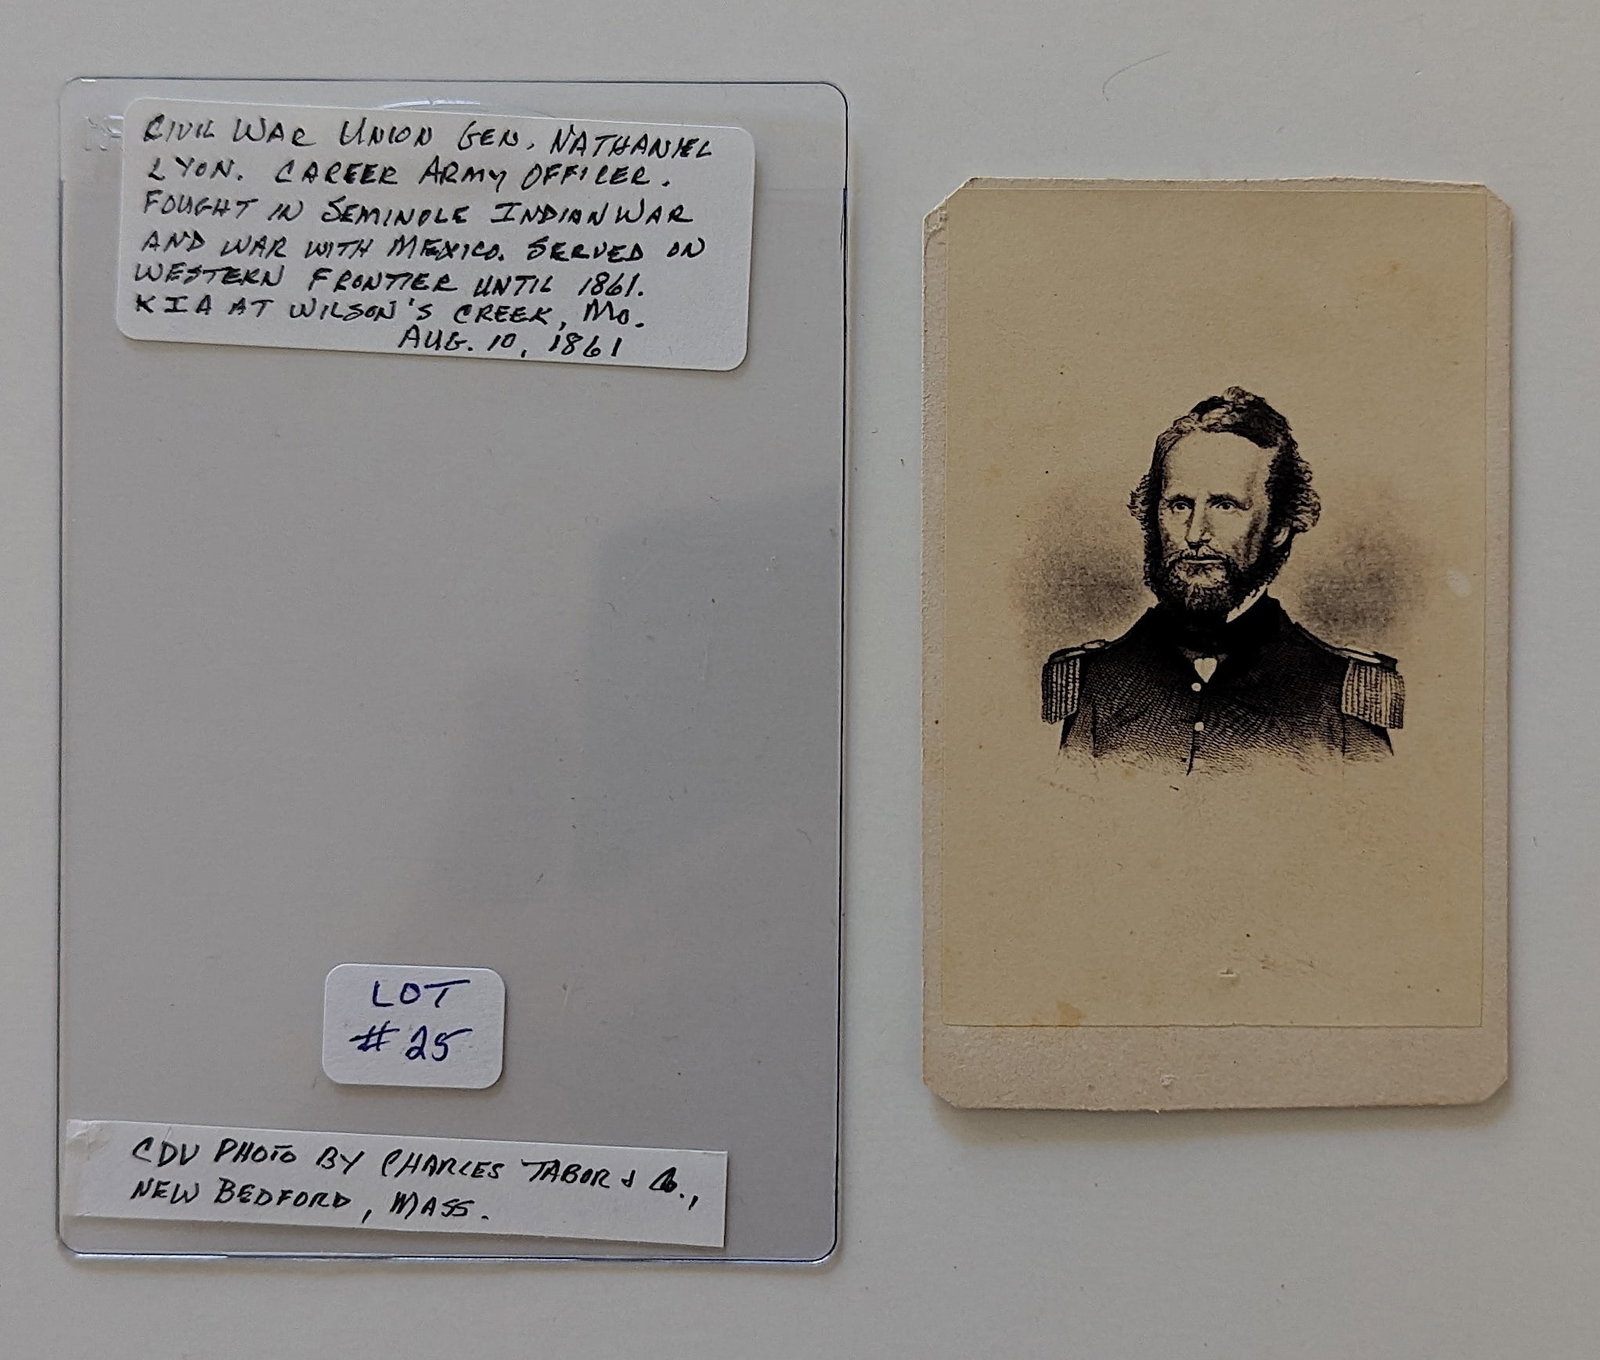 CIVIL WAR UNION GEN. NATHANIEL
LYON. CAREER ARMY OFFICER.
FOUGHT IN SEMINOLE INDIAN WAR
AND WAR WITH MEXICO. SERVED ON
WESTERN FRONTIER UNTIL 1861.
KIA AT WILSON'S CREEK, MO.
AUG. 10, 1861
LOT
# 25
CDV PHOTO BY CHARLES TABOR & CO.,
NEW BEDFORD, MASS.